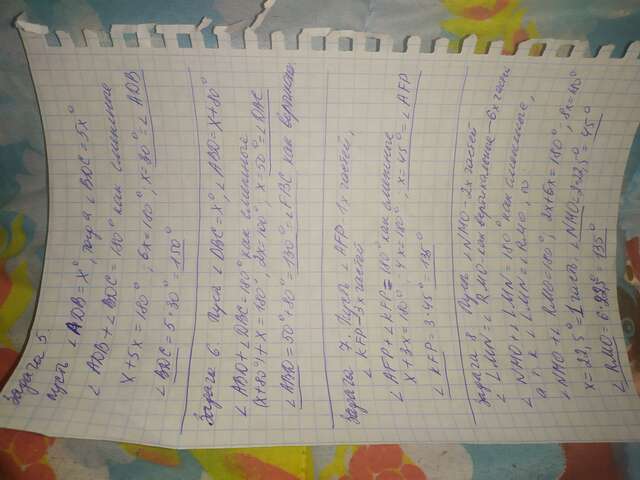 Задача 5.
Пусть ∠AOB = x°, тогда ∠BOC = 5x°
∠AOB + ∠BOC = 180° как смежные
x + 5x = 180°, 6x = 180°, x = 30° = ∠AOB
∠BOC = 5·30° = 150°
Задача 6. Пусть ∠DBC = x°, ∠ABD = x+80°
∠ABD + ∠DBC = 180° как смежные
(x+80°)+x = 180°, 2x = 100°, x = 50° = ∠DBC
∠ABD = 50°+80° = 130° = ∠FBC как вертикал.
Задача 7. Пусть ∠AFP - 1x частей,
∠KFP - 3x частей
∠AFP + ∠KFP = 180° как смежные
x + 3x = 180°, 4x = 180°, x = 45° = ∠AFP
∠KFP = 3·45° = 135°
Задача 8. Пусть ∠NMO - 2x частей
∠LMN = ∠RMO как вертикальные - 6x частей
∠NMO + ∠LMN = 180° как смежные,
а т.к. ∠LMN = ∠RMO, то
∠NMO + ∠RMO = 180°, 2x+6x = 180°, 8x = 180°
x = 22,5° = 1 часть, ∠NMO = 2·22,5° = 45°
∠RMO = 6·22,5° = 135°